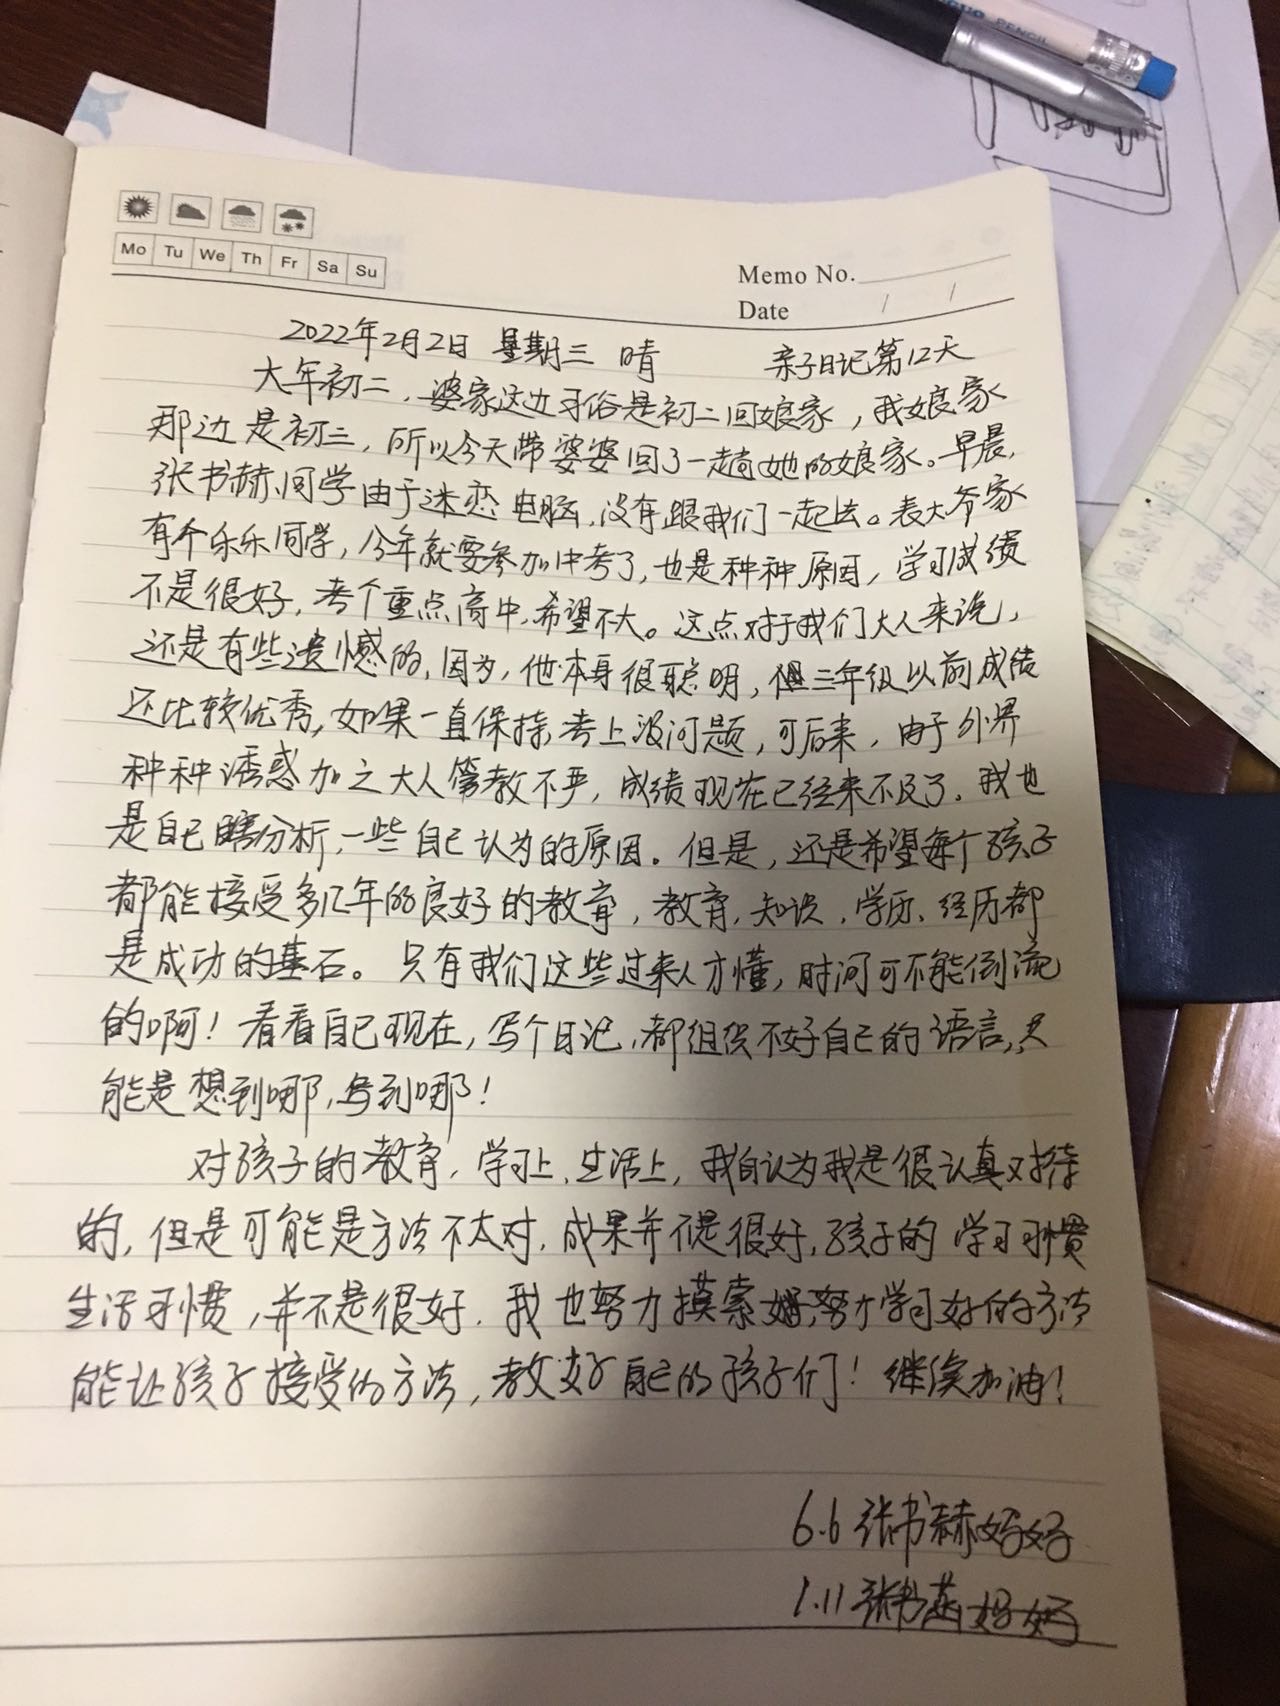 PENCIL
Mo Tu We Th Fr Sa Su
Memo No.
Date / /
2022年2月2日 星期三 晴 亲子日记第12天
大年初二，婆家这边习俗是初二回娘家，我娘家
那边是初三，所以今天带婆婆回了一趟她的娘家。早晨，
张书赫同学由于迷恋电脑，没有跟我们一起去。表大爷家
有个乐乐同学，今年就要参加中考了，也是种种原因，学习成绩
不是很好，考个重点高中，希望不大。这点对于我们大人来说，
还是有些遗憾的，因为，他本身很聪明，但三年级以前成绩
还比较优秀，如果一直保持，考上没问题，可后来，由于外界
种种诱惑加之大人管教不严，成绩现在已经来不及了。我也
是自己瞎分析，一些自己认为的原因。但是，还是希望每个孩子
都能接受多几年的良好的教育，教育，知识，学历、经历都
是成功的基石。只有我们这些过来人才懂，时间可不能倒流
的啊！看看自己现在，写个日记，都组织不好自己的语言，只
能是想到哪，写到哪！
对孩子的教育，学习上，生活上，我自认为我是很认真对待
的，但是可能是方法不太对，成果并不是很好，孩子的学习习惯
生活习惯，并不是很好，我也努力摸索，努力学习好的方法
能让孩子接受的方法，教好自己的孩子们！继续加油！
6.6 张书赫妈妈
1.11 张书燕妈妈